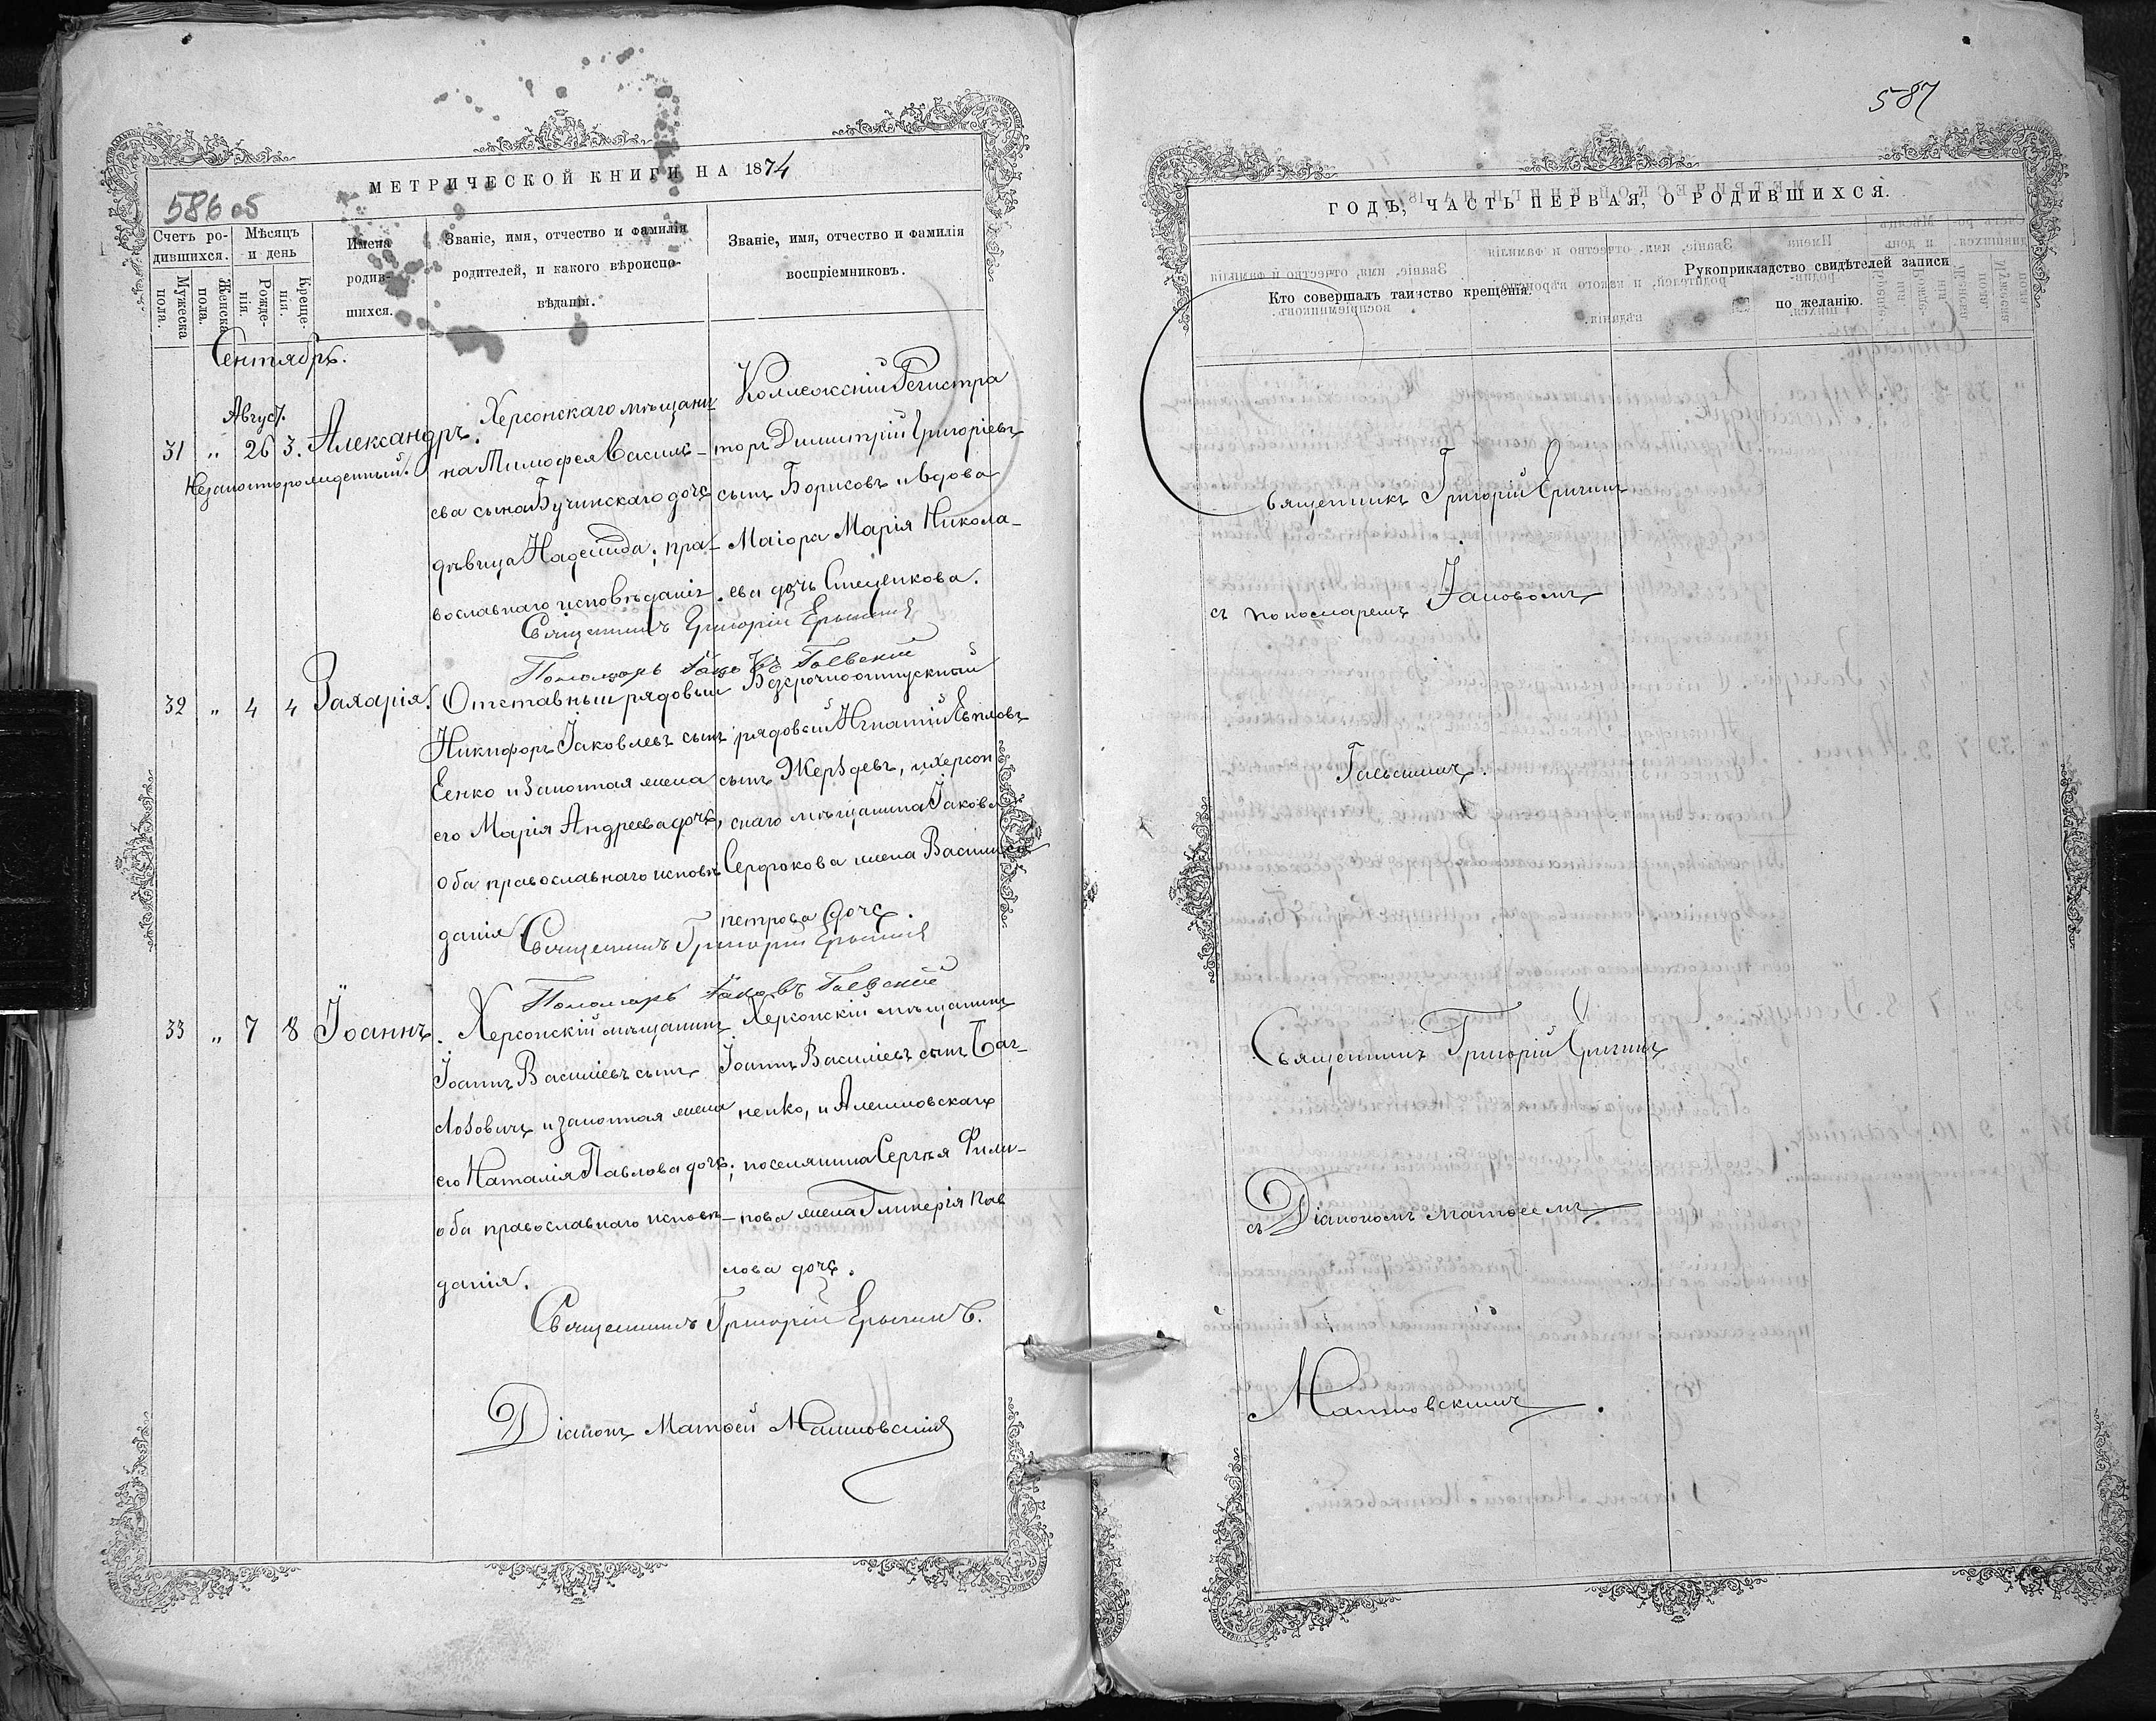 586 об
МЕТРИЧЕСКОЙ КНИГИ НА 1874
Счетъ ро-
дившихся.
Мѣсяцъ
и день
Мужеска
пола.
Женска
пола.
Рожде-
нія.
Креще-
нія.
Имена
родив-
шихся.
Званіе, имя, отчество и фамилія
родителей, и какого вѣроиспо-
вѣданія.
Званіе, имя, отчество и фамилія
воспріемниковъ.
Сентябрь.
Август.
31 " 26 3. Александръ.
Незаконнорожденный.
Херсонскаго мѣщани
на Тимофея Василь-
ева сына Бучинскаго дочь
дѣвица Надежда; пра-
вославнаго исповѣданія.
Коллежскій Регистра
торъ Димитрій Григоріевъ
сынъ Борисовъ и вдова
Маіора Марія Никола-
ева дочь Стеценкова.
Священникъ Григорій
Пономарь Іаковъ Гаевскій
32 " 4 4 Захарія.
Отставный рядовый
Никифоръ Іаковлевъ сынъ
Еенко и законная жена
его Марія Андреева дочь,
оба православнаго исповѣ
данія.
Безсрочноотпускный
рядовый Игнатій Евпловъ
сынъ Жерздевъ, и херсон
скаго мѣщанина Іакова
жена Василиса
петрова дочь.
Священникъ Григорій
Пономарь Іаковъ Гаевскій
33 " 7 8 Іоаннъ.
Херсонскій мѣщанинъ
Іоаннъ Василіевъ сынъ
Лозовичъ и законная жена
его Наталія Павлова дочь;
оба православнаго исповѣ-
данія.
Херсонскій мѣщанинъ
Іоаннъ Василіевъ сынъ Баг-
ненко, и Алешковскаго
поселянина Сергѣя Фили-
пова жена Гликерія Пав
лова дочь.
Священникъ Григорій
Діаконъ Матѳей Машковскій
587
ГОДЪ, ЧАСТЬ ПЕРВАЯ, О РОДИВШИХСЯ.
Кто совершалъ таинство крещенія.
Рукоприкладство свидѣтелей записи
по желанію.
Священникъ Григорій
съ пономаремъ Іаковомъ
Гаевскимъ.
Священникъ Григорій
съ Діакономъ Матѳеемъ
Машковскимъ.